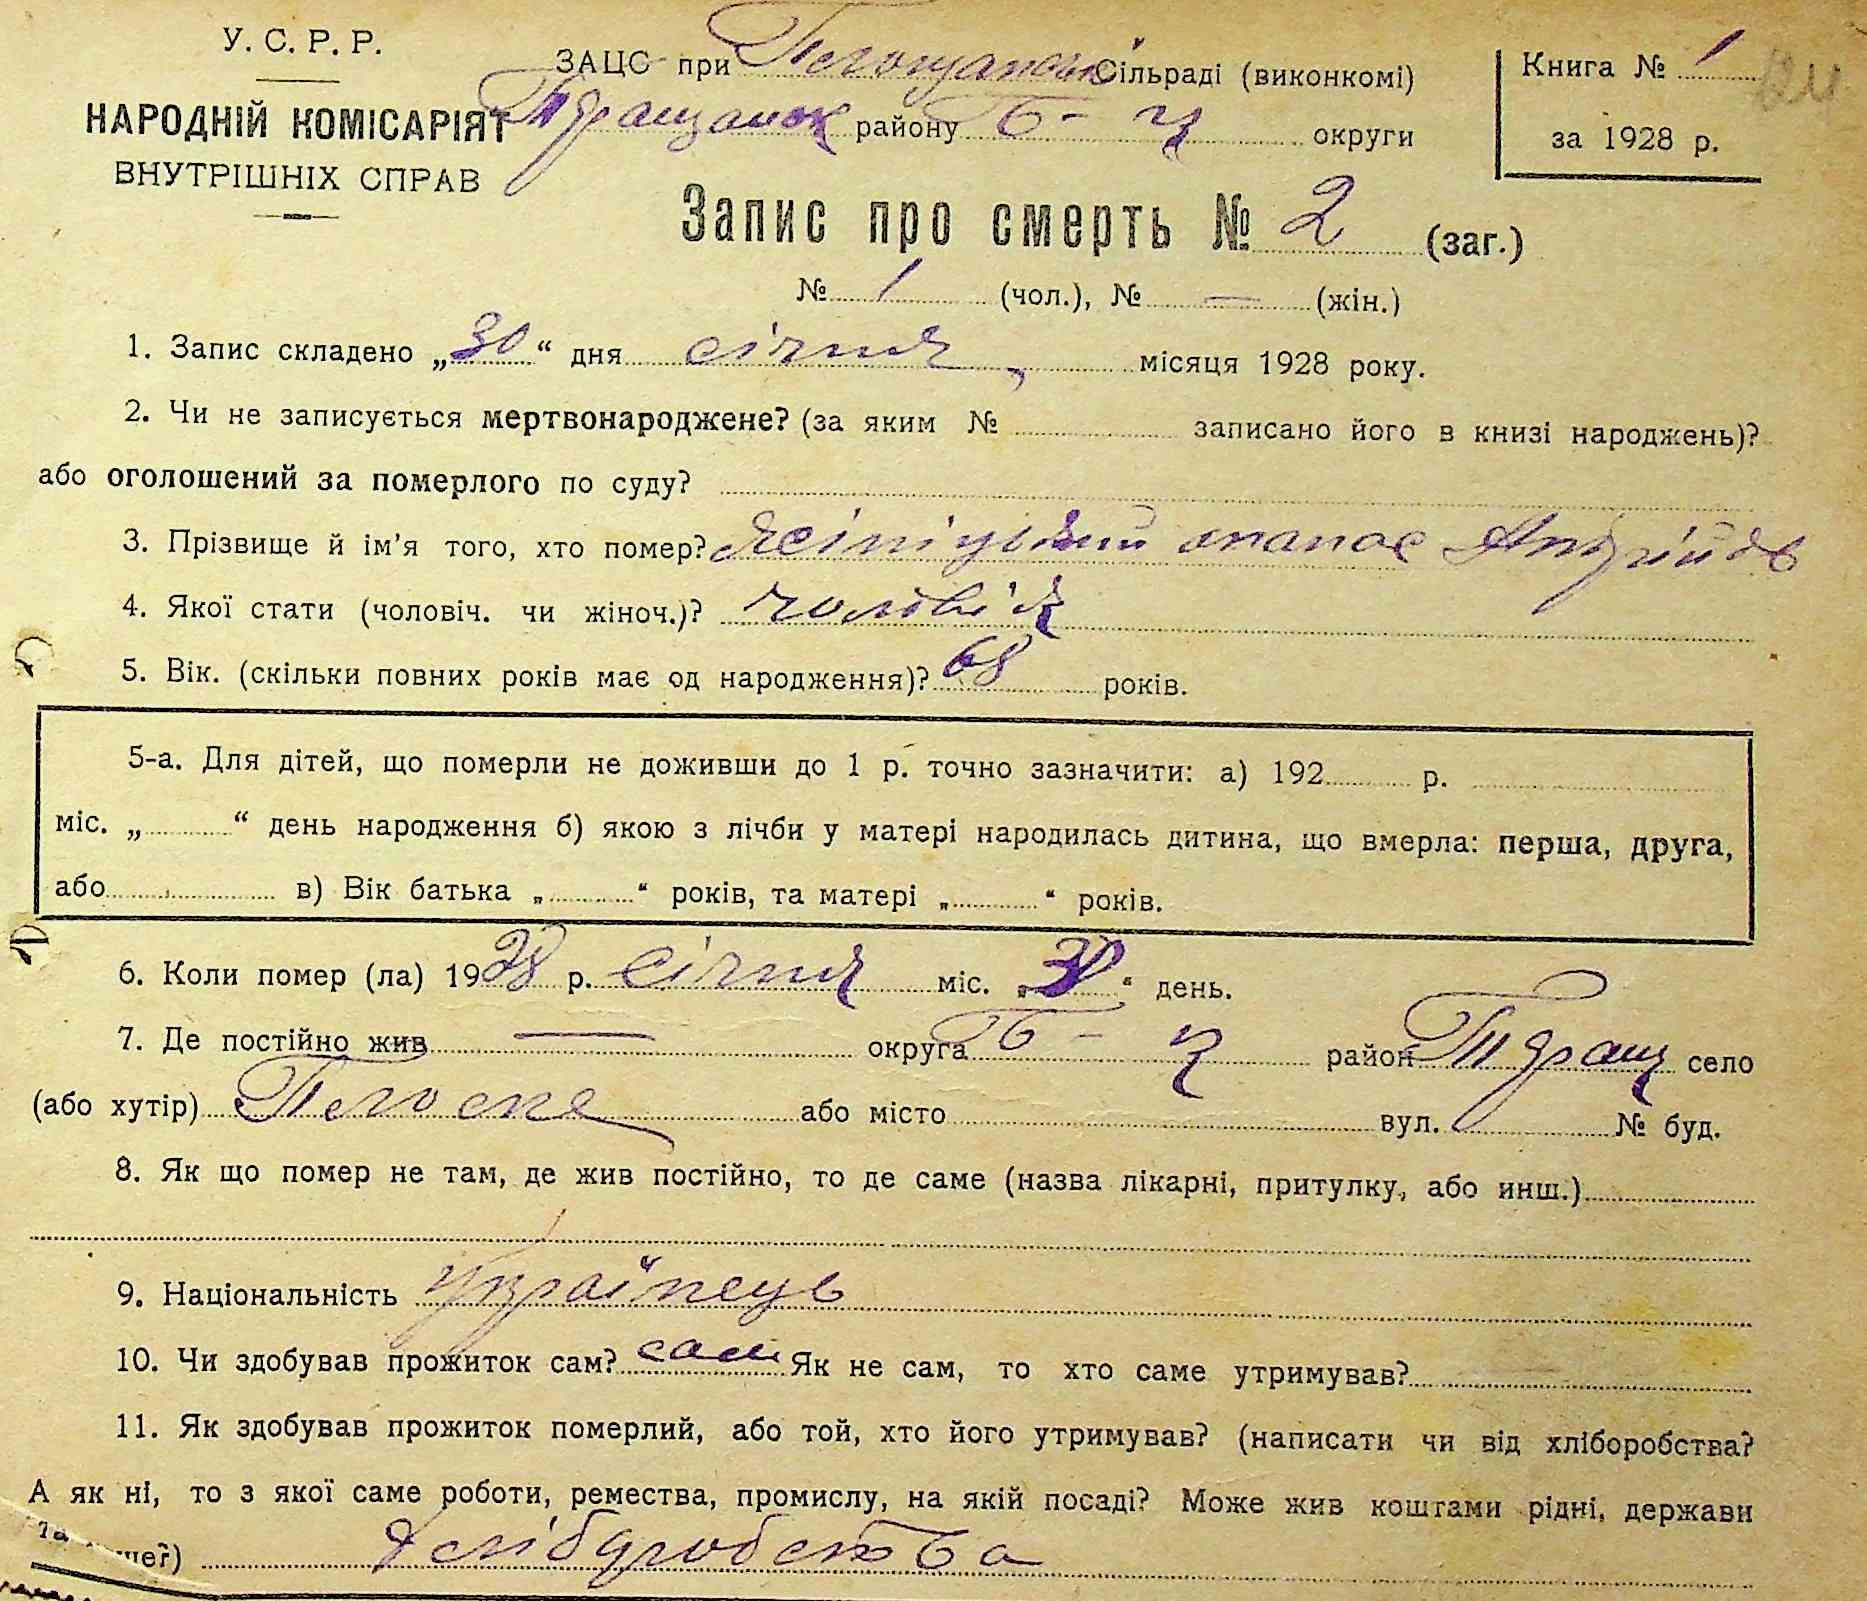 У. С. Р. Р.
НАРОДНІЙ КОМІСАРІЯТ
ВНУТРІШНІХ СПРАВ
ЗАЦС при Сільраді (виконкомі)
району Б - Ц округи
Книга № 1
за 1928 р.
Запис про смерть № 2 (заг.)
№ 1 (чол.), № — (жін.)
1. Запис складено „30“ дня січня місяця 1928 року.
2. Чи не записується мертвонароджене? (за яким № записано його в книзі народжень)?
або оголошений за померлого по суду?
3. Прізвище й ім'я того, хто помер? опанас
4. Якої стати (чоловіч. чи жіноч.)? чоловік
5. Вік. (скільки повних років має од народження)? 68 років.
5-а. Для дітей, що померли не доживши до 1 р. точно зазначити: а) 192 р.
міс. „ “ день народження б) якою з лічби у матері народилась дитина, що вмерла: перша, друга,
або в) Вік батька „ “ років, та матері „ “ років.
6. Коли помер (ла) 1928 р. січня міс. „30“ день.
7. Де постійно жив — округа Б - Ц район село
(або хутір) або місто вул. № буд.
8. Як що помер не там, де жив постійно, то де саме (назва лікарні, притулку, або инш.)
9. Національність Українець
10. Чи здобував прожиток сам? сам Як не сам, то хто саме утримував?
11. Як здобував прожиток померлий, або той, хто його утримував? (написати чи від хліборобства?
А як ні, то з якої саме роботи, ремества, промислу, на якій посаді? Може жив коштами рідні, держави
та хліборобства